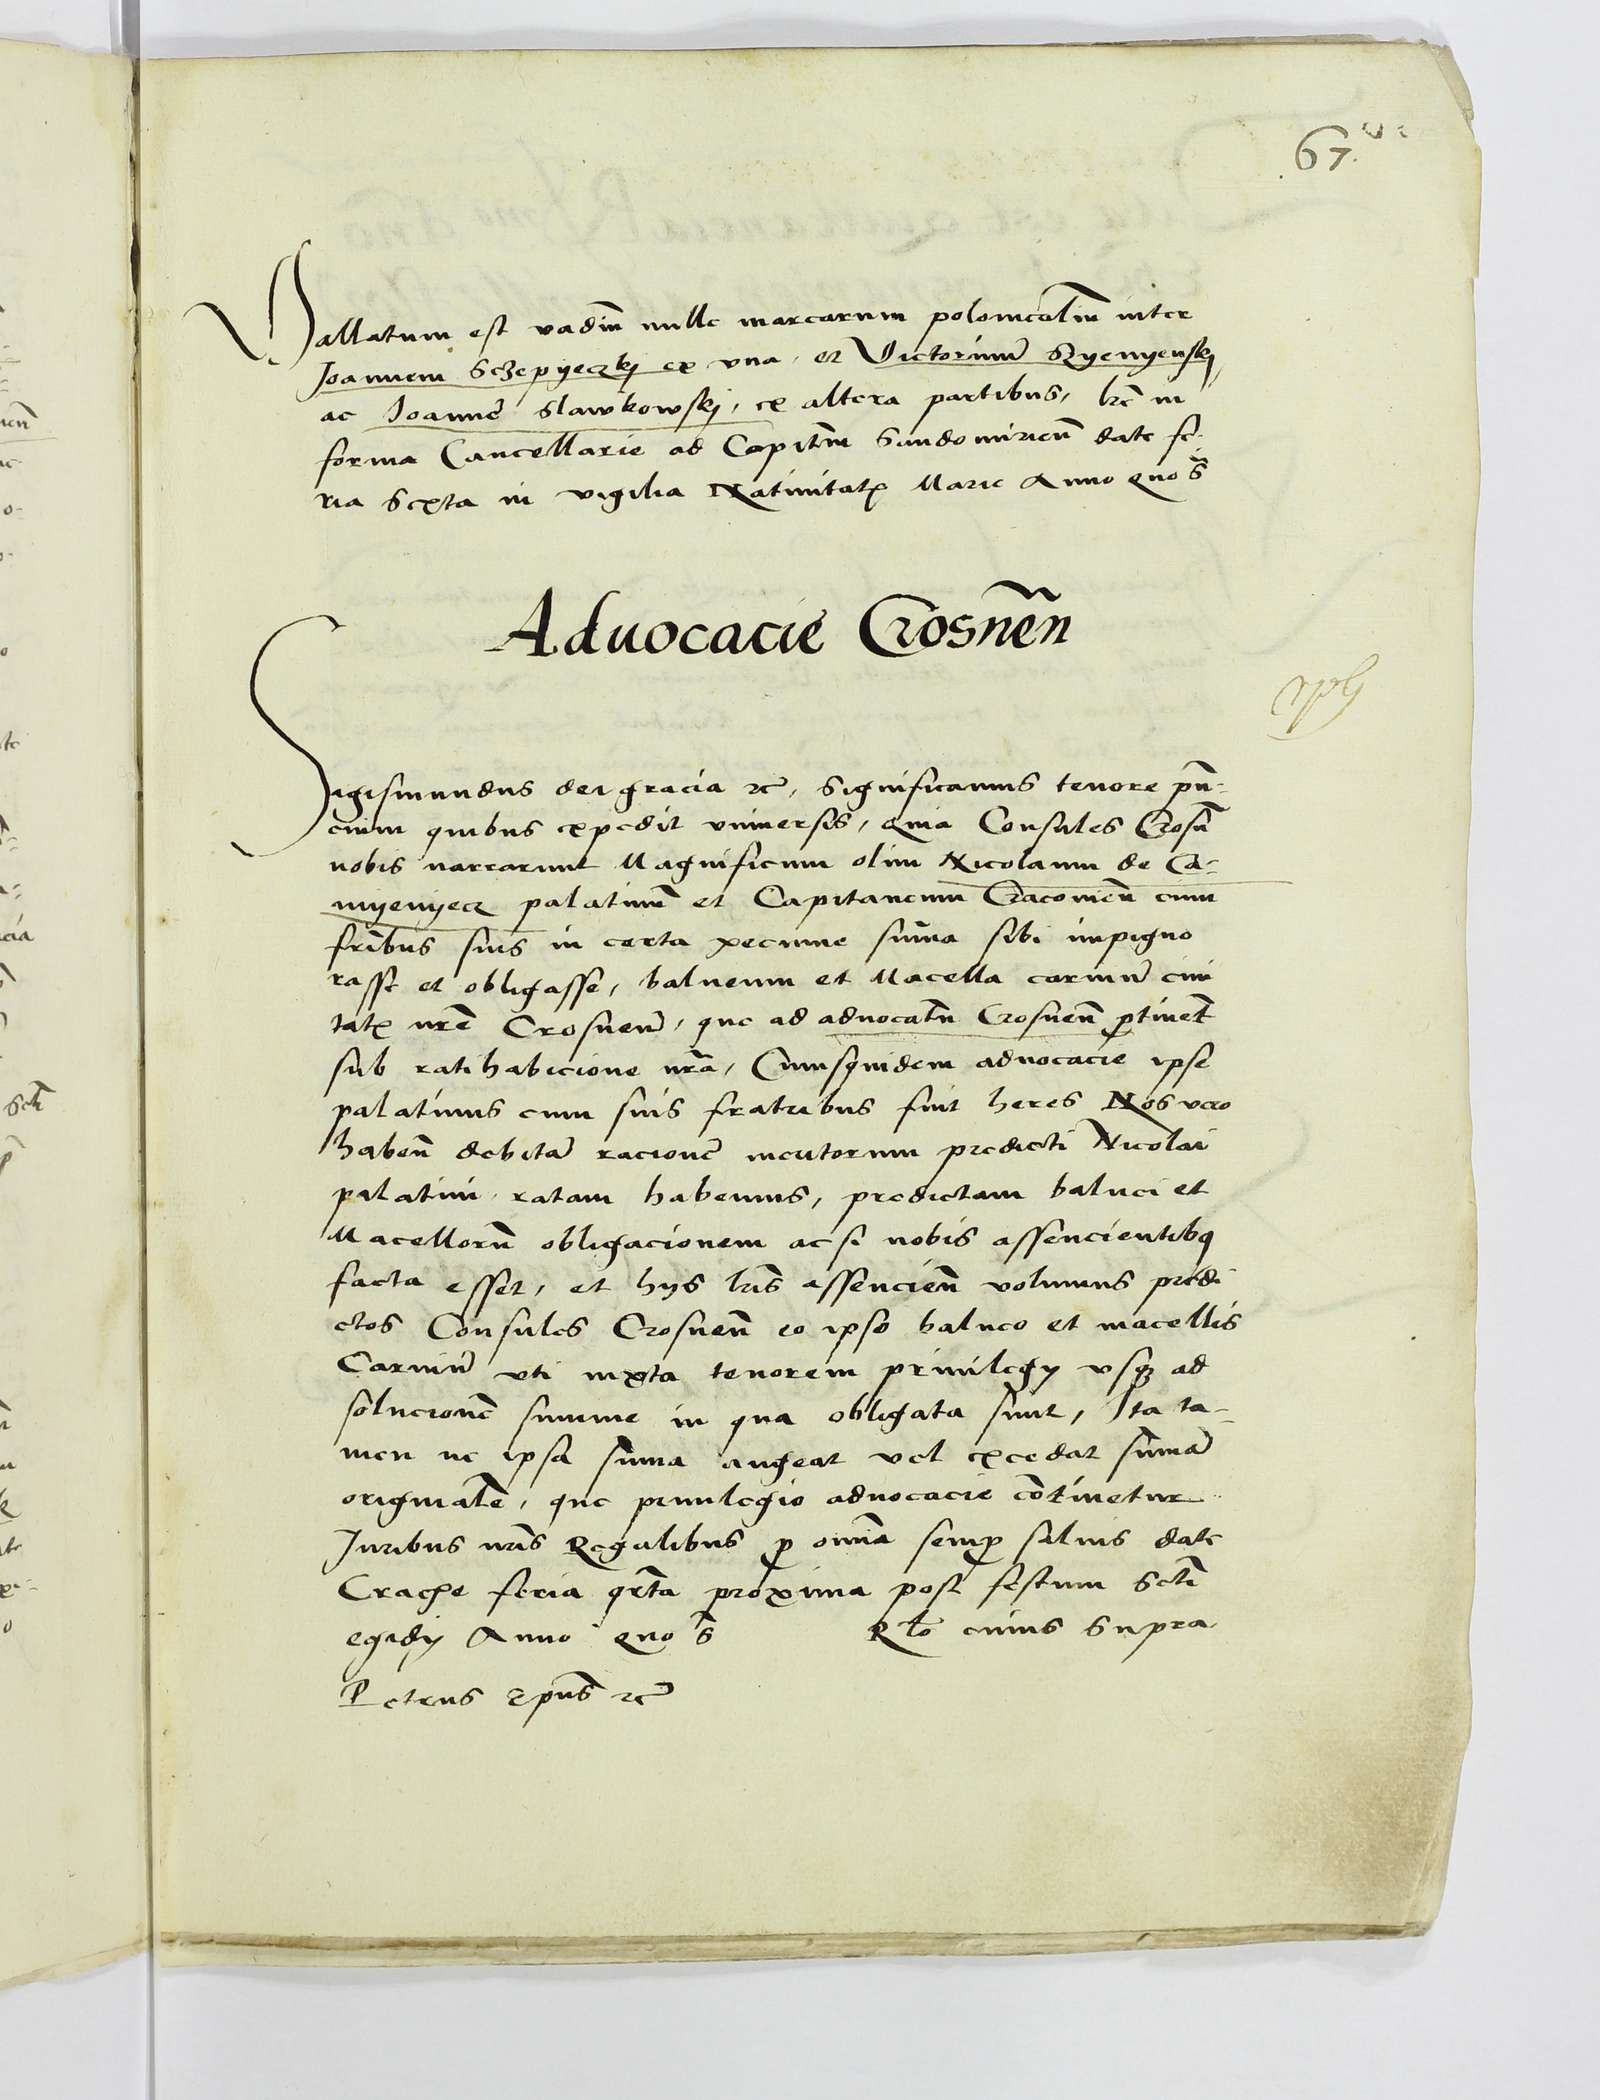 67.
Vallatum est vadiũ mille marcarum polonicaliũ inter
Joannem Sczepyeczkj ex vna, et Victorinum̃ Syenyenskj
ac Joannẽ Slawkowskj, ex altera partibus, lrẽ in
forma Cancellarie ad Capitm̃ Sandomirien̄ date fe-
ria Sexta in vigilia Natiuitatꝭ Marie Anno quo s̃
Aduocacie Crosneñ
Sigismundus dei gracia ⁊c̃, Significamus tenore pñ-
cium quibus expedit vniuersis, Quia Consules Crosñ
nobis narrarunt Magnificum olim Nicolaum de Ca-
myenyecz palatinum̃ et Capitaneum Cracouien̄ cum
fr̃ibus suis in certa pecunie sum̃a sibi impigno
rasse et obligasse, balneum et Macella carnium̃ ciui
tatꝭ nr̃e Crosnen̄, que ad aduocat̃m Crosnen̄ ꝑtinet̃
sub ratihabicione nr̃a, Cuiusquidem aduocacie ipse
palatinus cum suis fratribus fuit heres Nos vero
haben̄ debitam̃ racionẽ meritorum predicti Nicolai
palatini, ratam habemus, predictam balnei et
Macellorũ obligacionem ac si nobis assencientibꝫ
facta esset, et hijs lr̃is assencien̄ volumus predi
ctos Consules Crosnen̄ eo ipso balneo et macellis
Carnium̃ vti iuxta tenorem priuilegÿ vsqꝫ ad
solucionẽ summe in qua obligata sunt, Ita ta-
men ne ipsa sum̃a augeat vel excedat sum̃am̃
originalẽ, que priuilegio aduocacie cõtinetur
Juribus nr̃is Regalibus ꝑ omĩa semꝑ saluis date
Cracoe feria qr̃ta proxima post festum Sctĩ
egidÿ Anno quo s̃ Rlõ cuius Supra
Petrus Epũs ⁊c̃